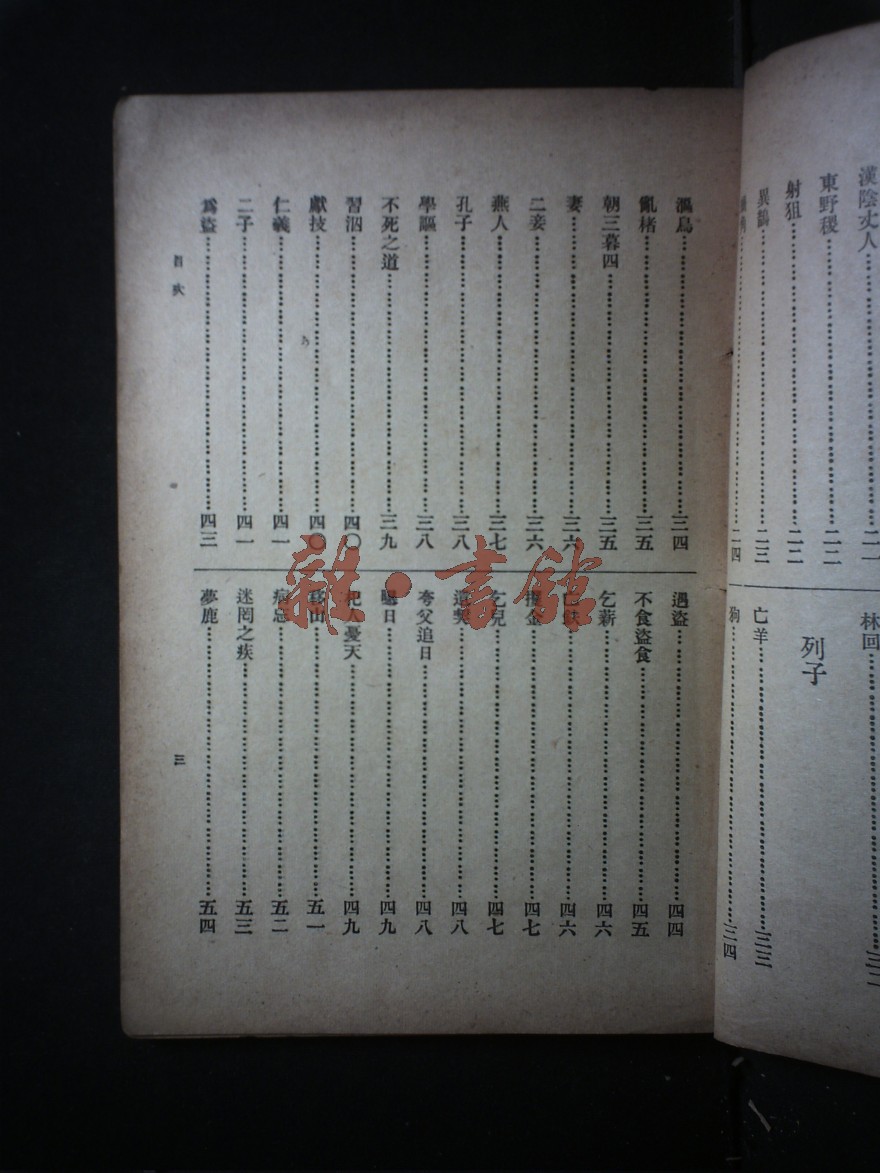 漢陰丈人 二一
東野稷 二二
射狙 二二
異鵲 二三
二四
林回
列子
亡羊 三三
狗 三四
漚鳥 三四
亂楮 三五
朝三暮四 三五
妻 三六
二妾 三六
燕人 三七
孔子 三八
學謳 三八
不死之道 三九
習泅 四〇
獻技 四〇
仁義 四一
二子 四一
爲盜 四三
遇盜 四四
不食盜食 四五
乞薪 四六
四六
攫金 四七
乞兒 四七
遺契 四八
夸父追日 四八
曝日 四九
杞人憂天 四九
移山 五一
病忘 五二
迷罔之疾 五三
夢鹿 五四
目次
三
雜·書館